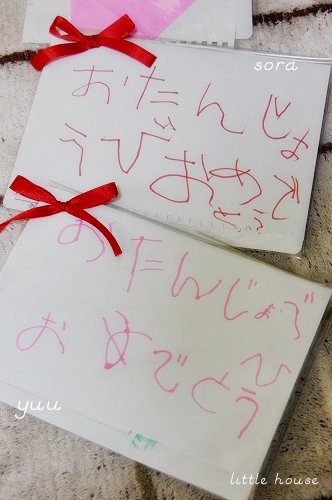 sora
おたんじょ
うびおめで
とう
おたんじょ
ひ
おめでとう
yuu
little house